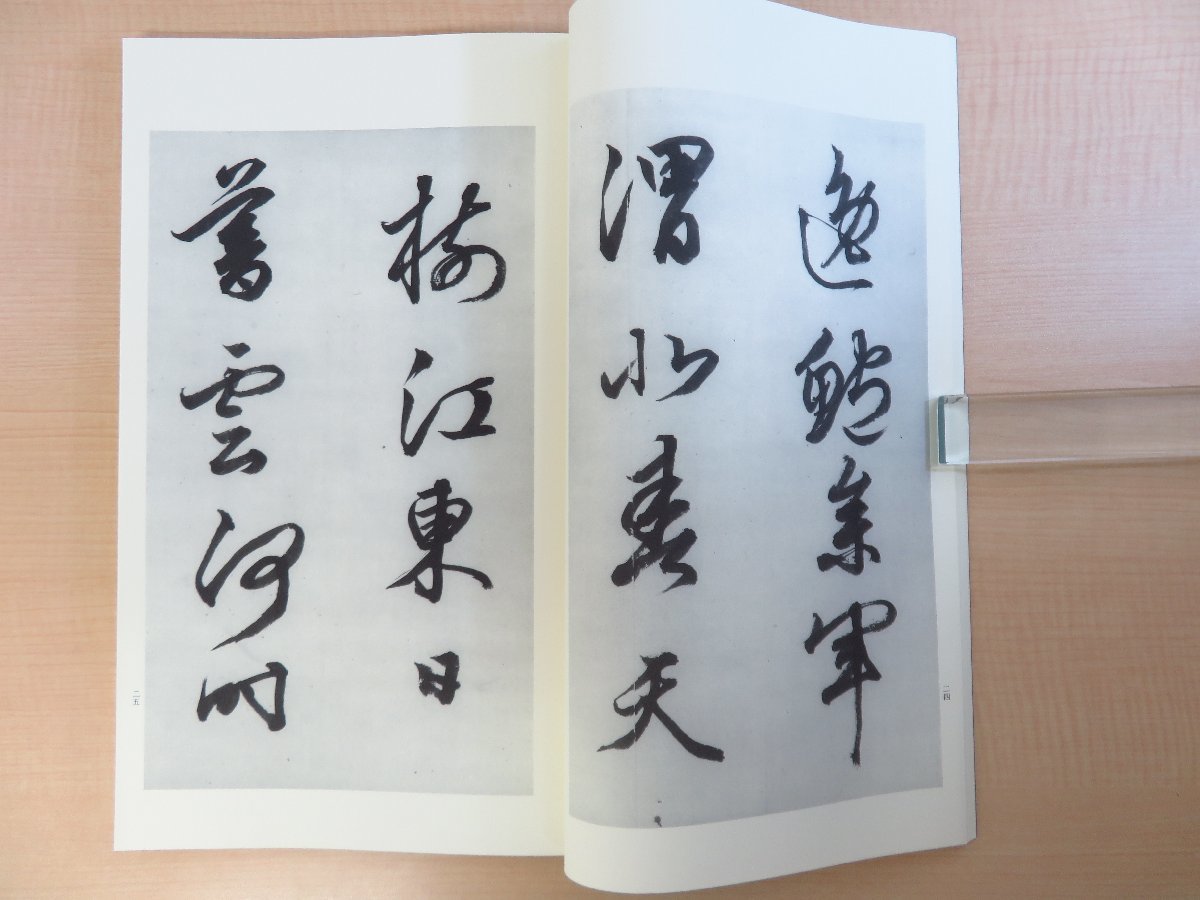 逸鮑參軍
渭北春天
二四
樹江東日
暮雲何時
二五